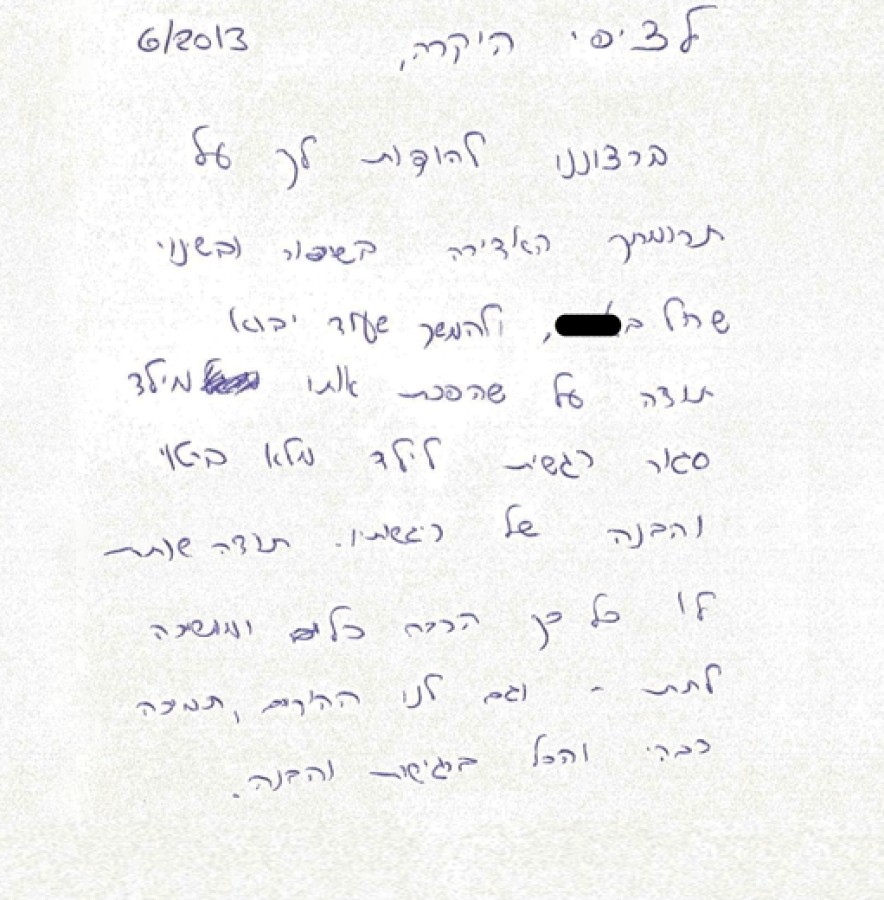 לציפי היקרה, 6/2013
ברצוננו להודות לך על
תרומתך האדירה בשיפור ובשינוי
שחל ב, ולהמשך שעוד יבוא
תודה על שהפכת אותו מילד
סגור רגשית לילד מלא ביטוי
והבנה של ריגשותיו. תודה שנתת
לו כל כך הרבה כלים וממשיכה
לתת - וגם לנו ההורים, תמיכה
רבה והכל ברגישות והבנה.